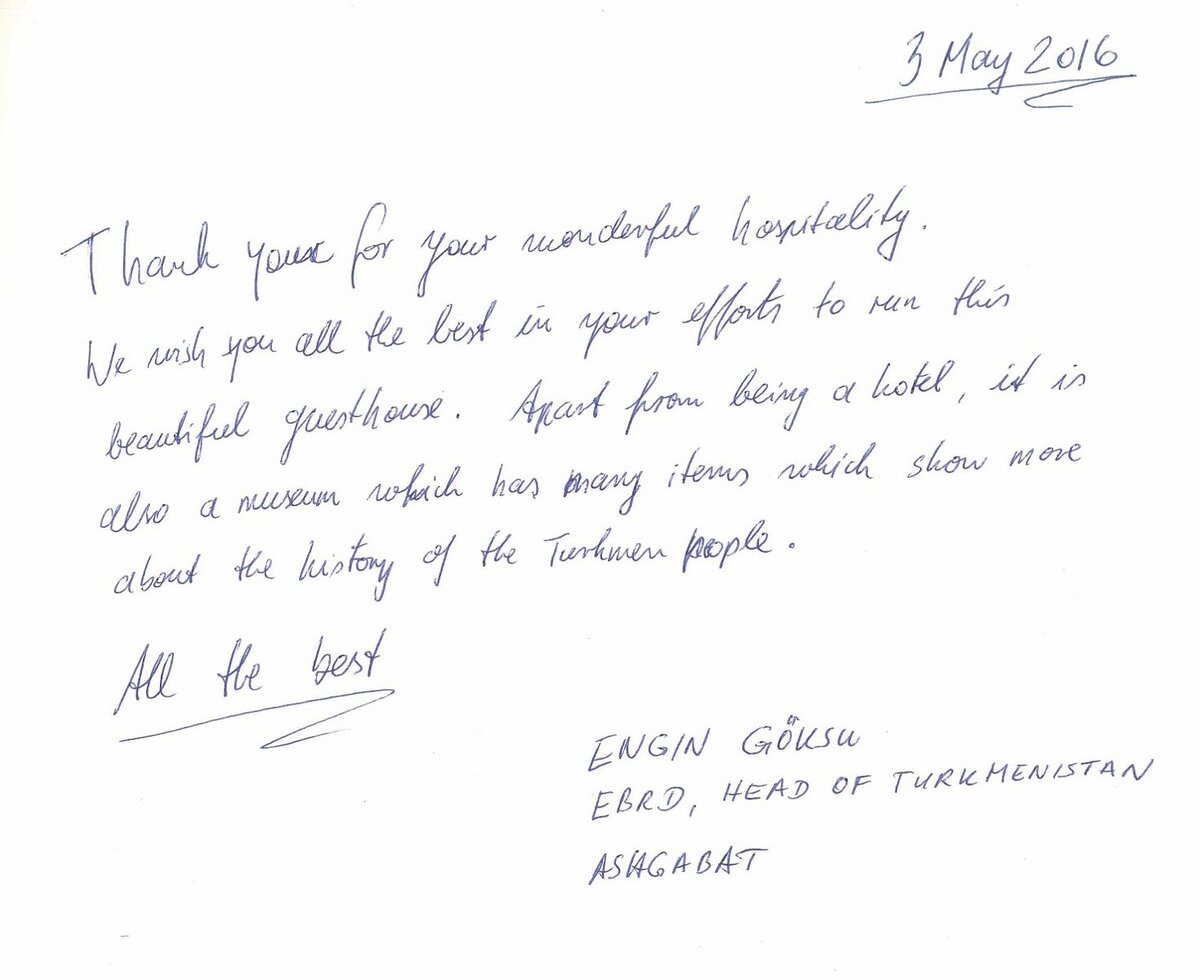 3 May 2016
Thank you for your wonderful hospitality.
We wish you all the best in your efforts to run this
beautiful guesthouse. Apart from being a hotel, it is
also a museum which has many items which show more
about the history of the Turkmen people.
All the best
ENGIN GÖKSU
EBRD, HEAD OF TURKMENISTAN
ASHGABAT